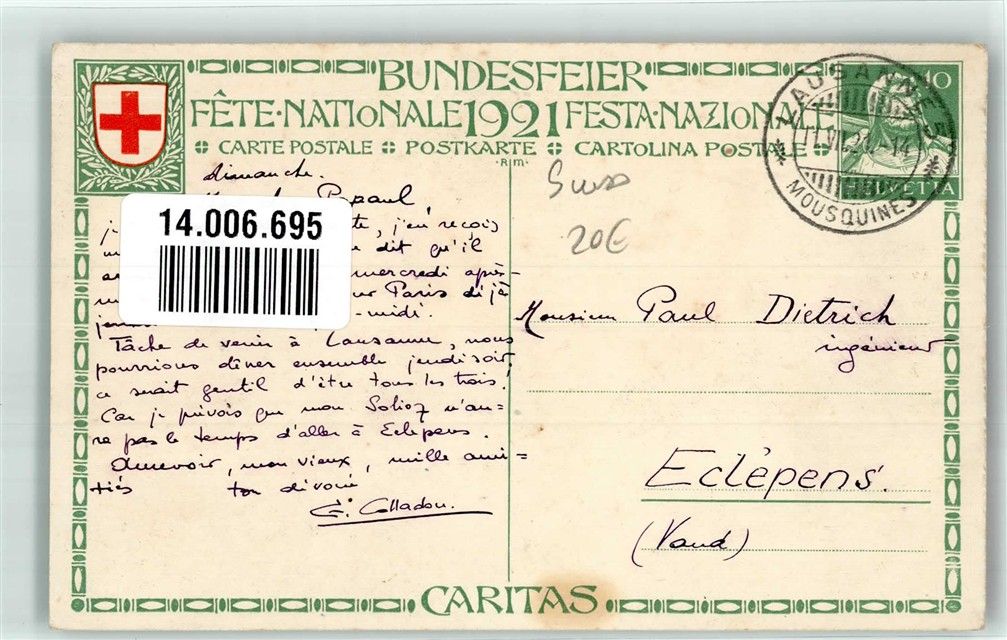 BUNDESFEIER
FÊTE·NATIONALE 1921 FESTA·NAZION
CARTE POSTALE POSTKARTE CARTOLINA POSTALE
·R|M·
10
HELVETIA
LAUSANNE
MOUSQUINES
Suisse
20€
14.006.695
dimanche.
Papaul,
te, j'en reçois
dit qu'il
mercredi après-
Paris déjà
-midi.
Tâche de venir à Lausanne, nous
pourrions dîner ensemble jeudi soir,
ce serait gentil d'être tous les trois.
Car je prévois que mon n'au=
ra pas le temps d'aller à Eclépens.
Aurevoir, mon vieux, mille ami=
tiés ton dévoué
G. Colladon.
Monsieur Paul Dietrich
ingénieur
Eclépens.
(Vaud)
CARITAS